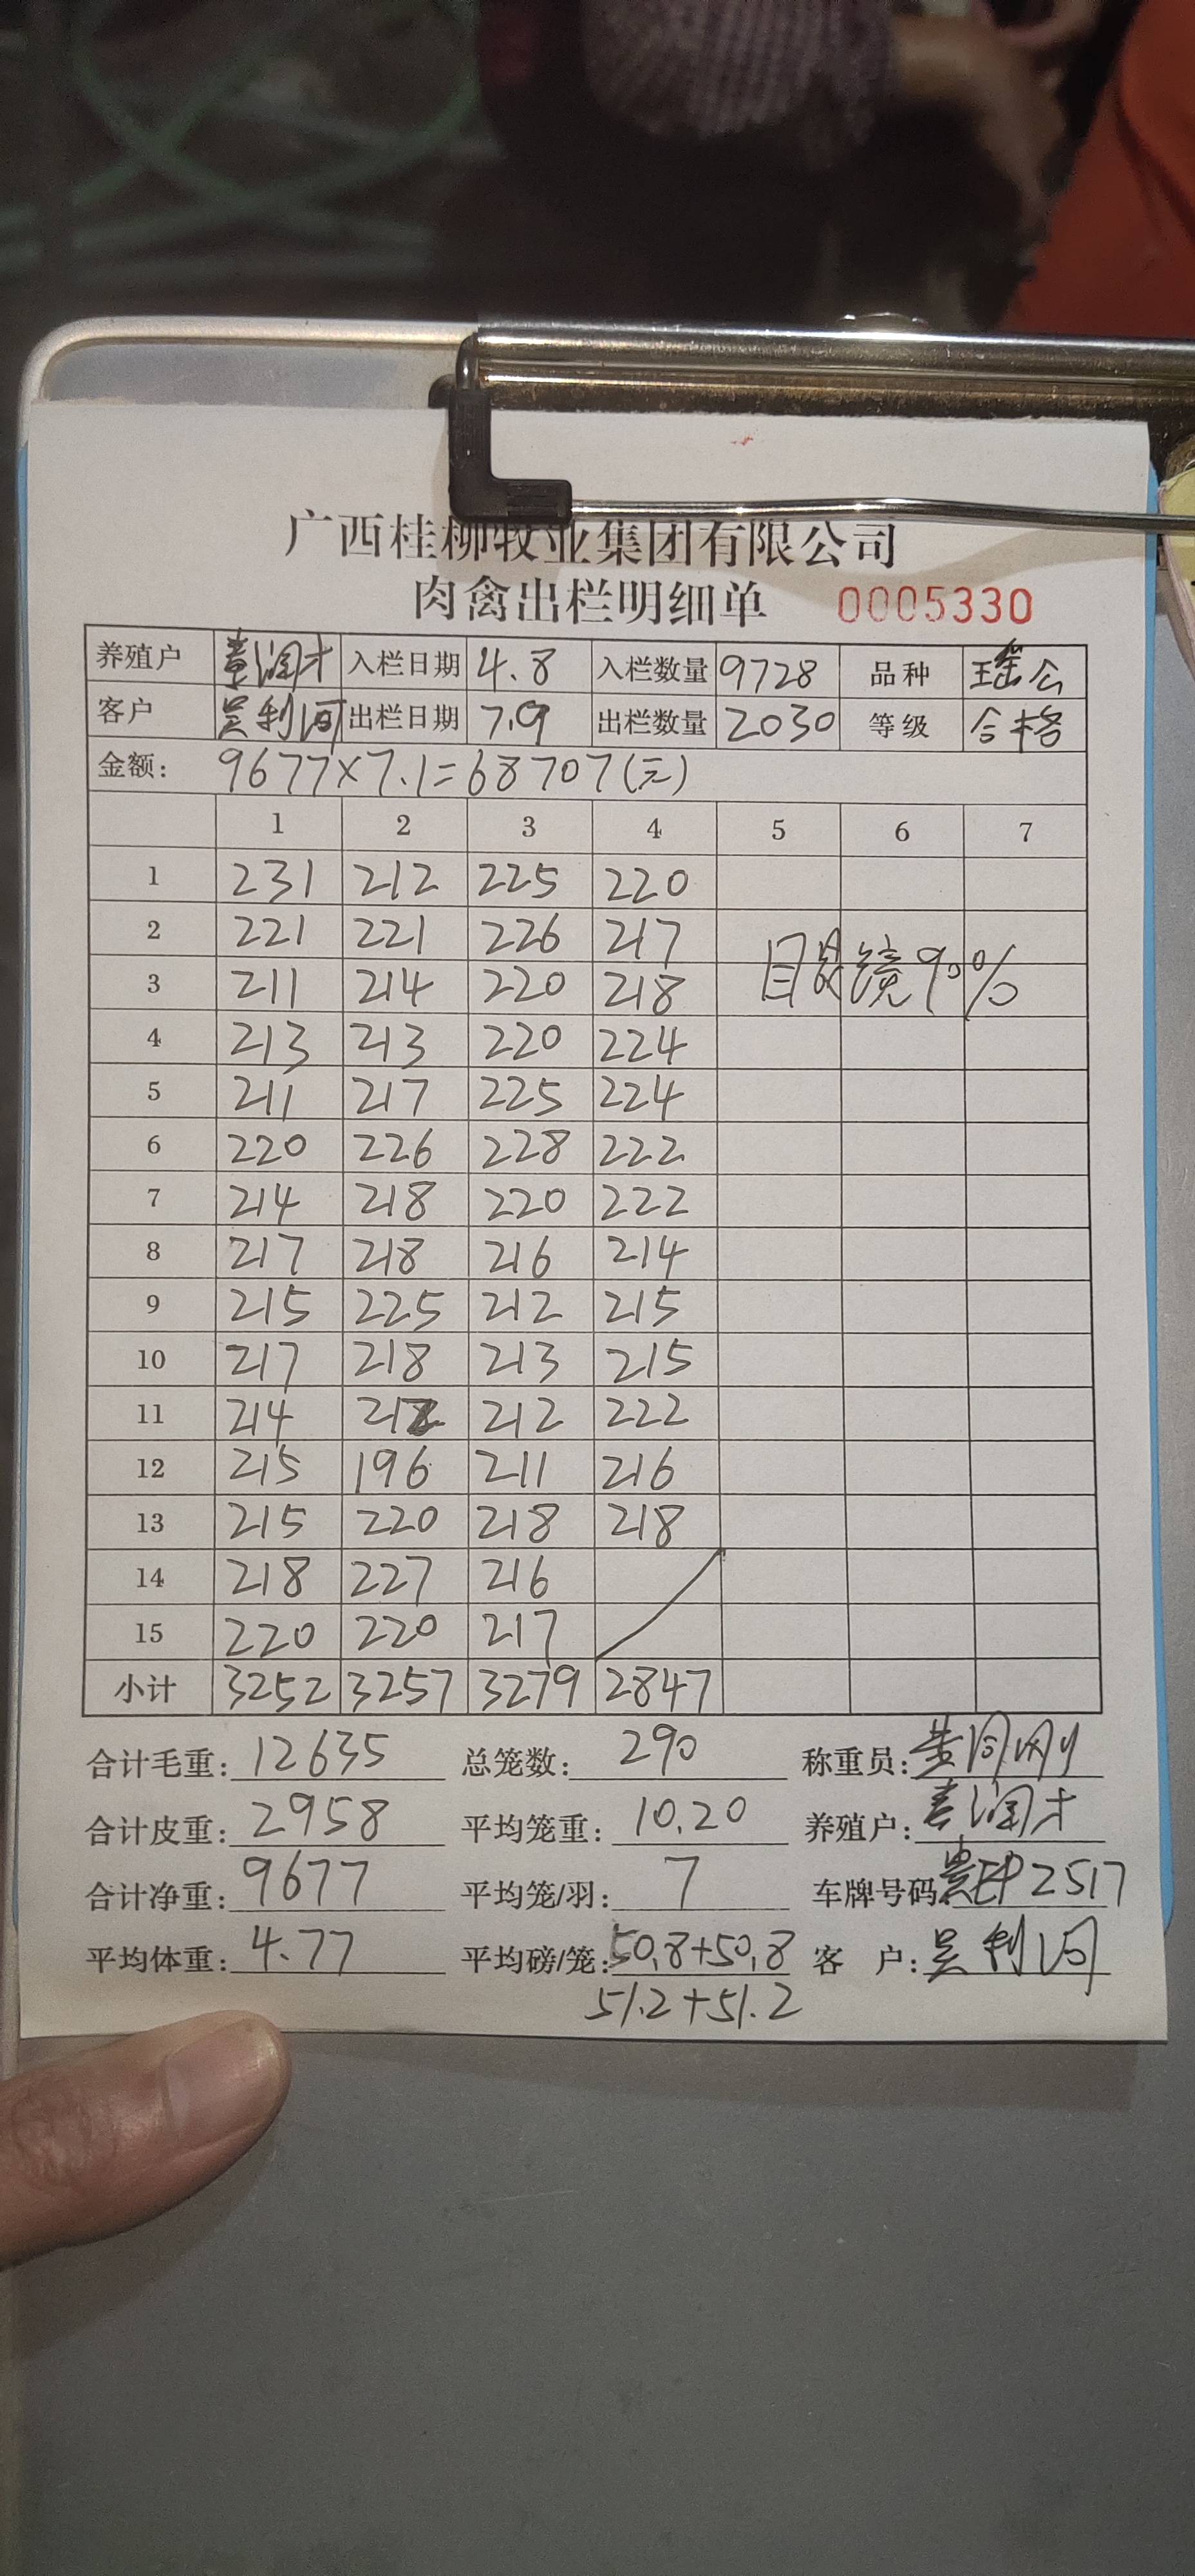 广西桂柳牧业集团有限公司
肉禽出栏明细单 0005330
养殖户 润才 入栏日期 4.8 入栏数量 9728 品种 瑶公
客户 吴利河 出栏日期 7.9 出栏数量 2030 等级 合格
金额: 9677×7.1=68707(元)
1 2 3 4 5 6 7
1 231 212 225 220
2 221 221 226 217
3 211 214 220 218
眼镜90%
4 213 213 220 224
5 211 217 225 224
6 220 226 228 222
7 214 218 220 222
8 217 218 216 214
9 215 225 212 215
10 217 218 213 215
11 214 212 212 222
12 215 196 211 216
13 215 220 218 218
14 218 227 216
15 220 220 217
小计 3252 3257 3279 2847
合计毛重: 12635 总笼数: 290 称重员:
合计皮重: 2958 平均笼重: 10.20 养殖户: 润才
合计净重: 9677 平均笼/羽: 7 车牌号码: 贵EP2517
平均体重: 4.77 平均磅/笼: 50.8+50.8 客 户: 吴利河
51.2+51.2